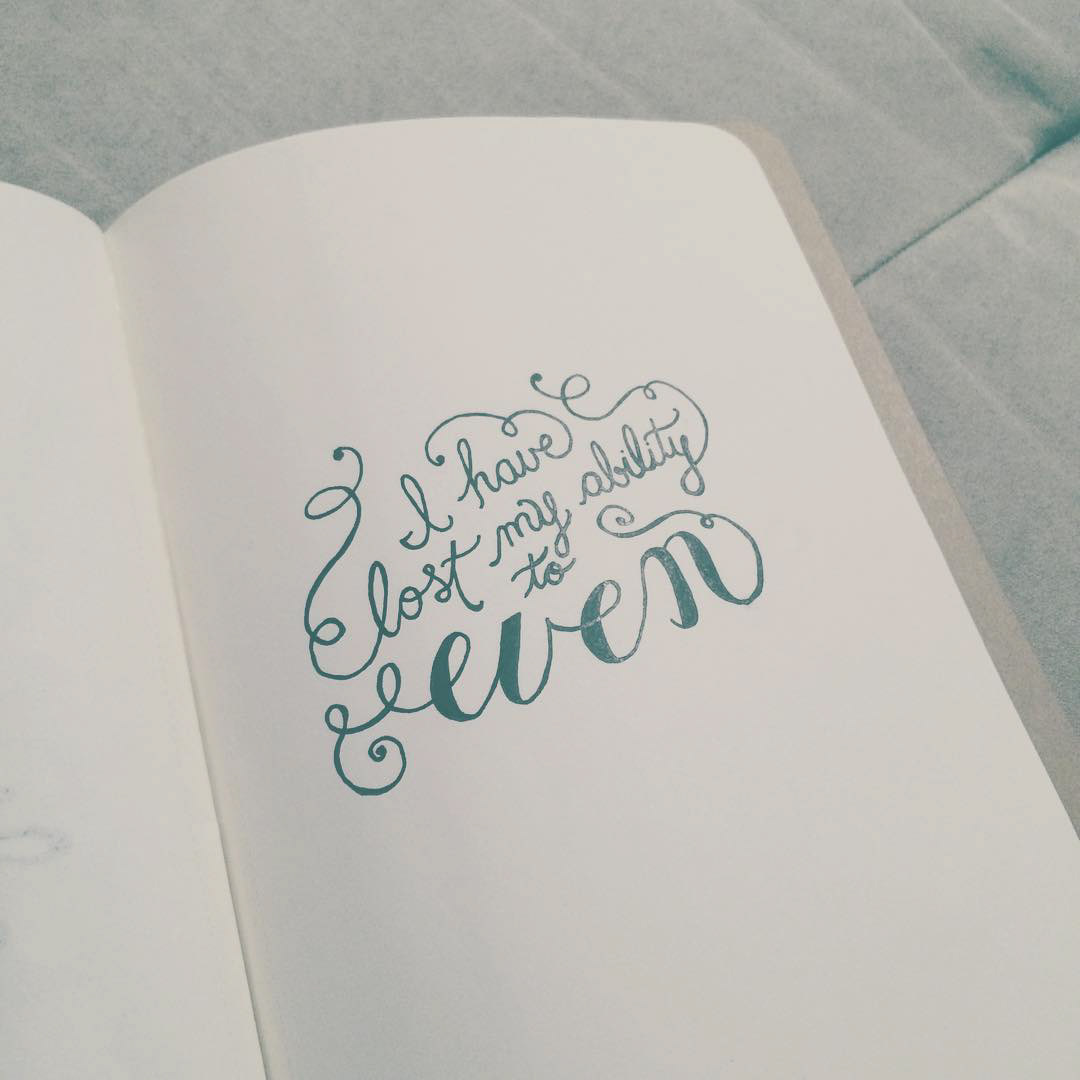 I have
lost my ability
to
even